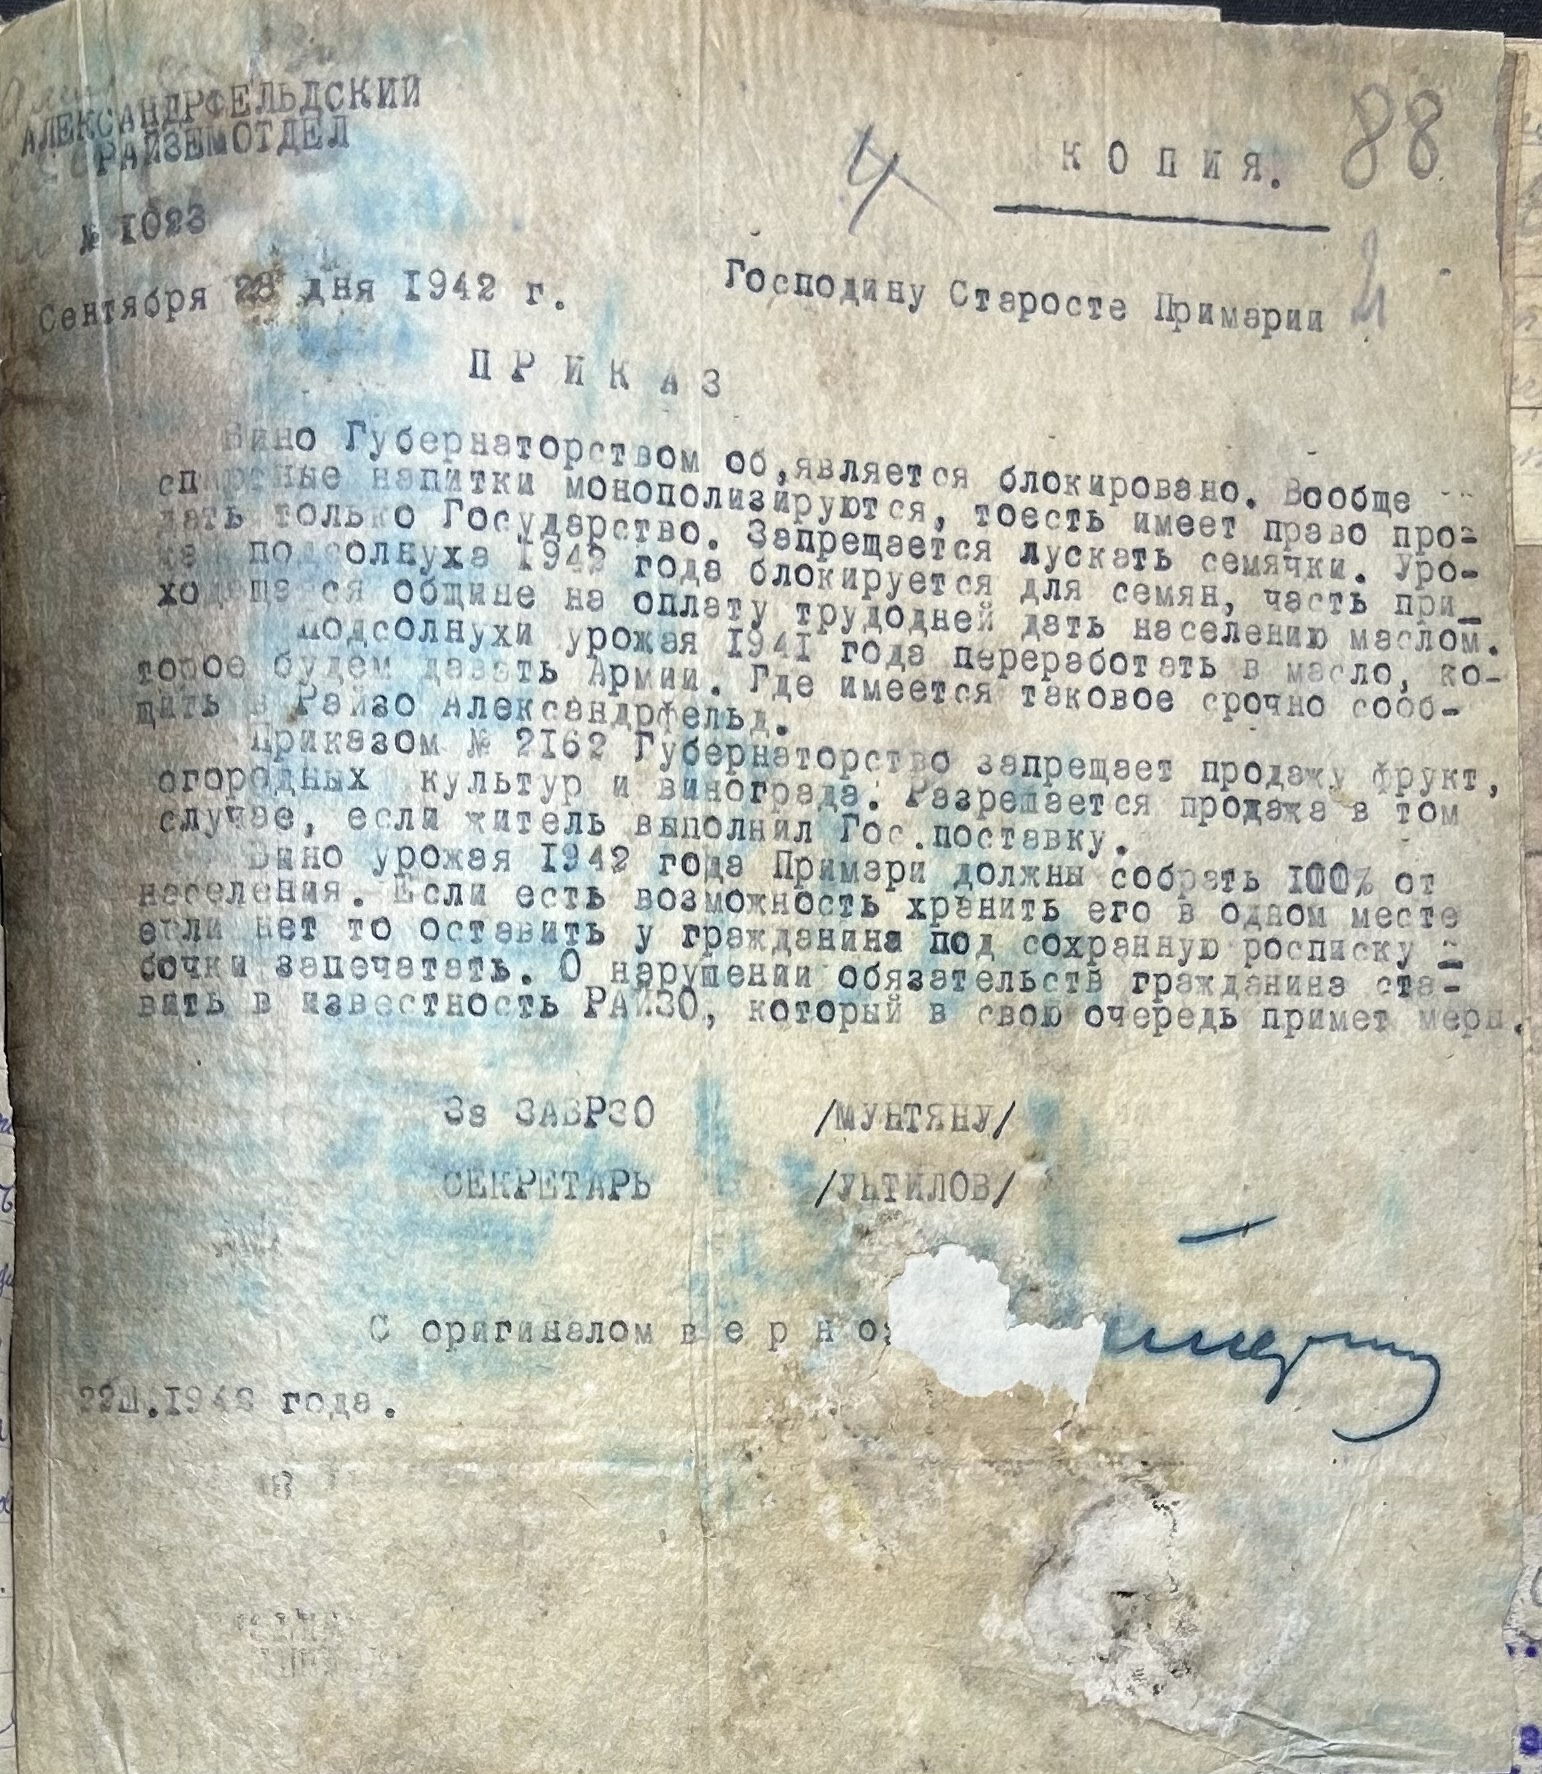 АЛЕКСАНДРФЕЛЬДСКИЙ
РАЙЗЕМОТДЕЛ
№ 1023
Сентября 28 дня 1942 г.
88
4
КОПИЯ.
Господину Старосте Примарии
ПРИКАЗ
Вино Губернаторством об,является блокировано. Вообще
спиртные напитки монополизируются, тоесть имеет право про-
дать только Государство. Запрещается лускать семячки. Уро-
жай подсолнуха 1942 года блокируется для семян, часть при_
ходящаяся общине на оплату трудодней дать населению маслом.
Подсолнухи урожая 1941 года переработать в масло, ко-
торое будем давать Армии. Где имеется таковое срочно сооб-
щить в Райзо Александрфельд.
Приказом № 2162 Губернаторство запрещает продажу фрукт,
огородных культур и винограда. Разрешается продажа в том
случае, если житель выполнил Гос.поставку.
Вино урожая 1942 года Примари должны собрать 100% от
населения. Если есть возможность хранить его в одном месте
если нет то оставить у гражданина под сохранную росписку -
бочки запечатать. О нарушении обязательств гражданина ста-
вить в известность РАЙЗО, который в свою очередь примет меры.
За ЗАВРЗО /МУНТЯНУ/
СЕКРЕТАРЬ /УЬТИЛОВ/
С оригиналом верно:
1942 года.